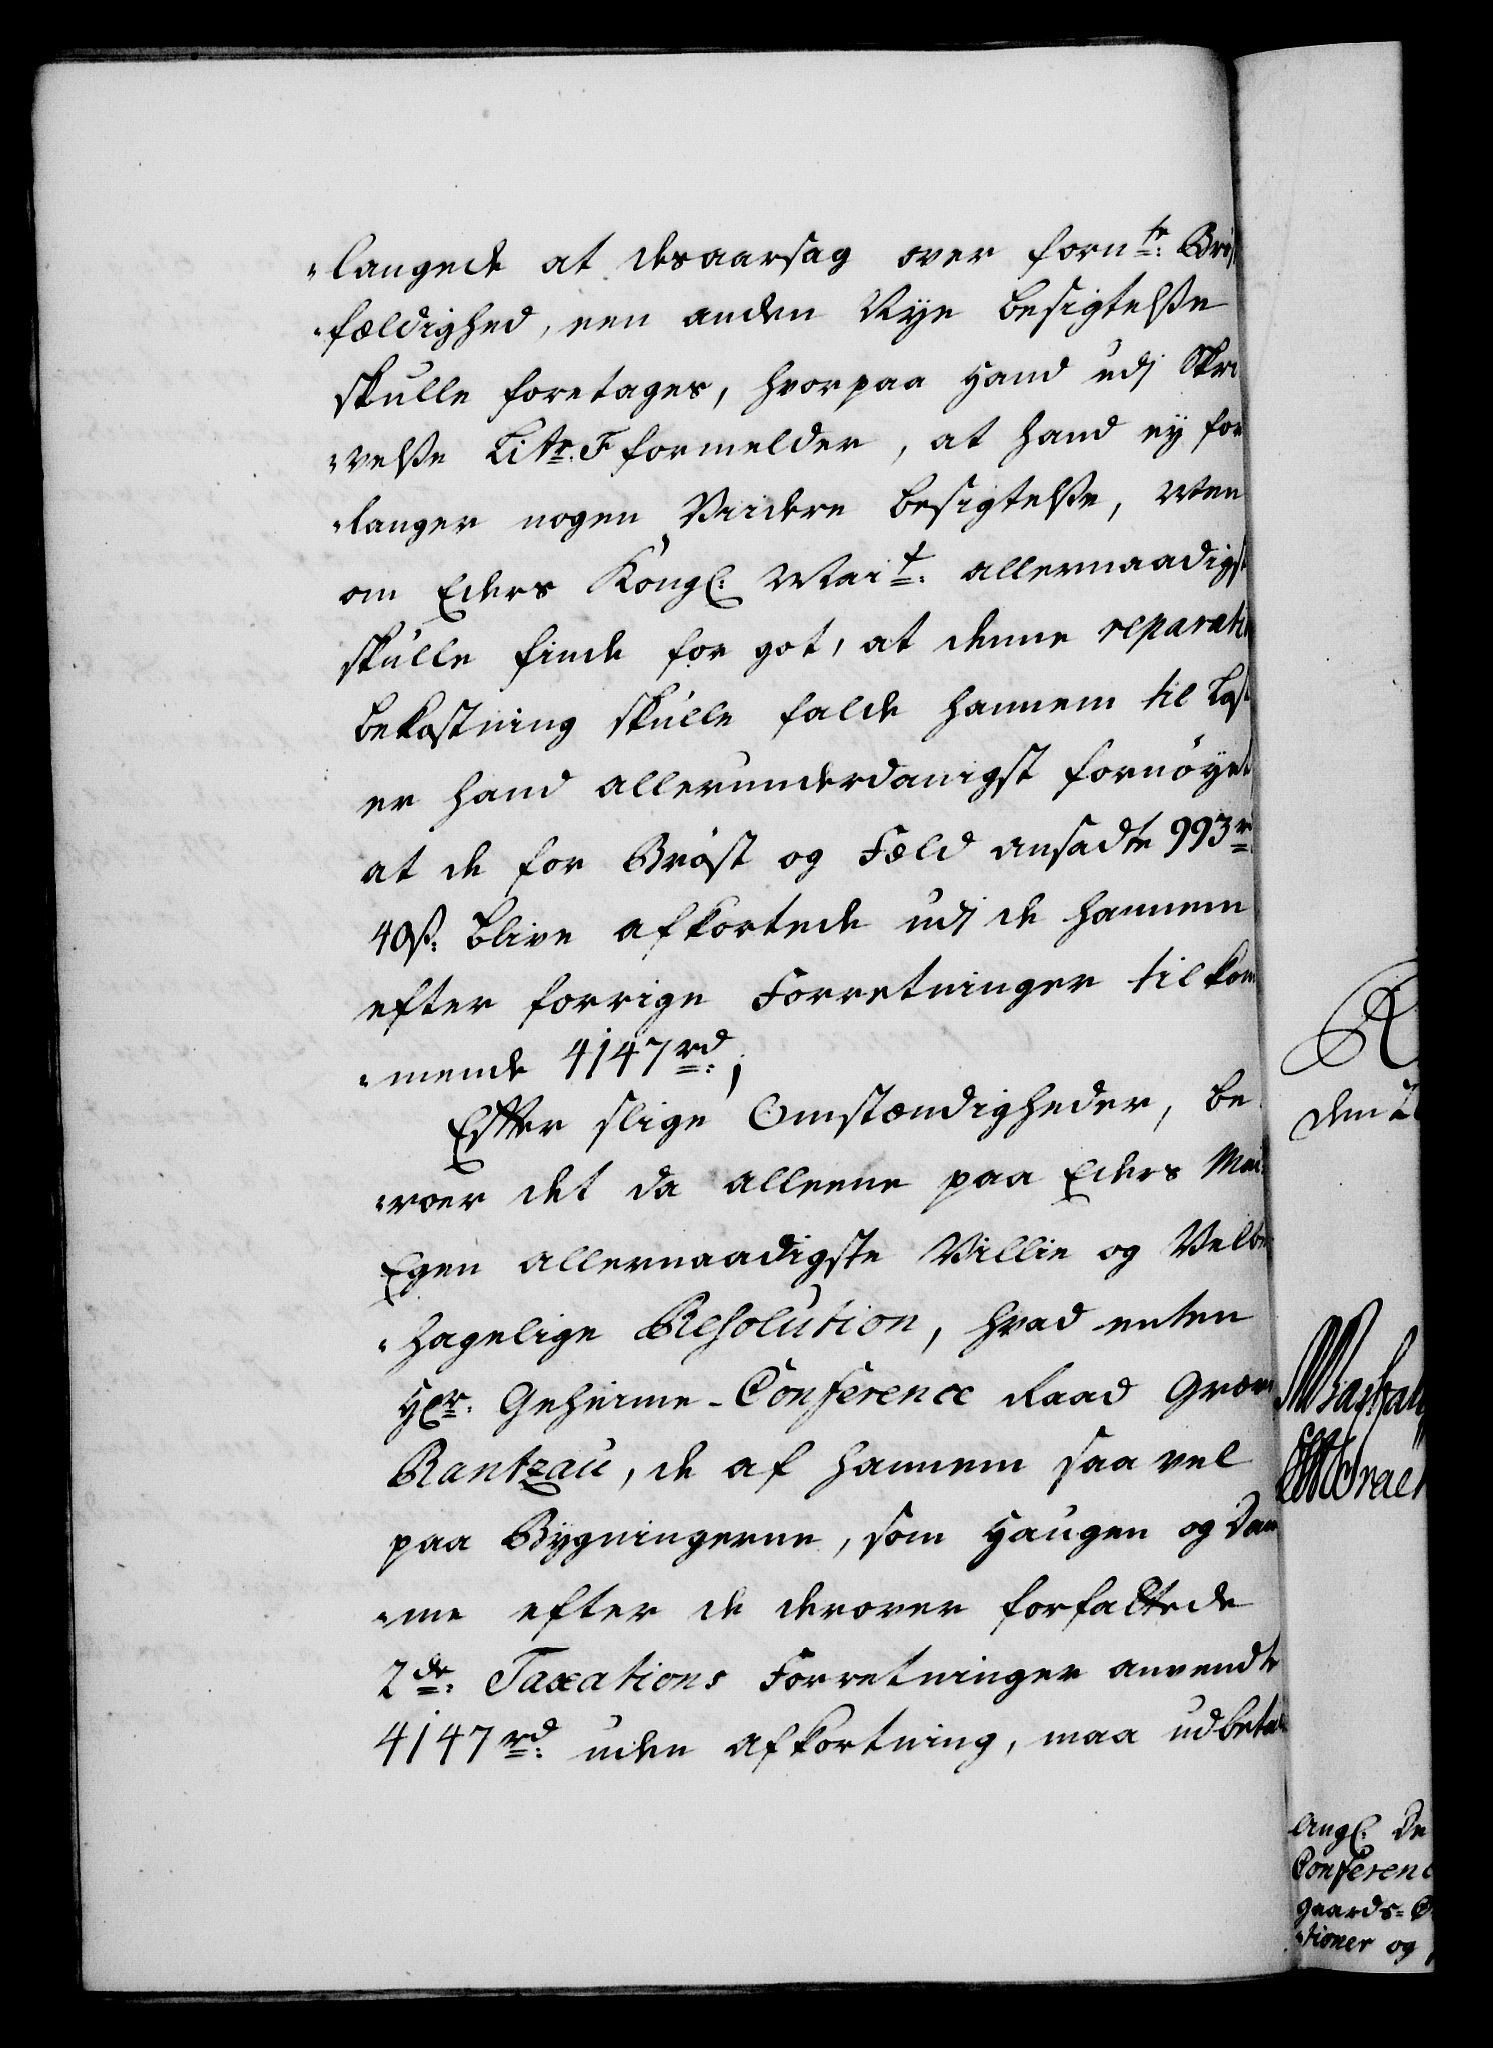 "langede at desaarsag over fornte: Brøst
"fældighed, een anden Nye besigtelsse
skulle foretages, hvorpaa Hand udj Skri
"velsse Litr. F formelder, at hand ey for
"langer nogen Viidere besigtelse, Men
om Eders Kongl: Mait: allernaadigst
skulle finde for got, at denne reparati
bekostning skulle falde hannem til Last
er hand allerunderdanigst fornøyet
at de for Brøst og Fæld ansadte 993 r
40ß: blive afkortede udj de hannem
efter forrige Forretninger tilkom
"mende 4147 rd:;
Efter slige Omstændigheder, be
"roer det da alleene paa Eders Mai
Egen allernaadigste Villie og Velbe
"hagelige Resolution, hvad enten
Hr: Geheime-Conference Raad Grev
Rantzau, de af hannem saa vel
paa Bygningerne, som Haugen og Dam
"me efter de derover forfattede
2de: Taxations Forretninger anvendte
4147 rd: uden afkortning, maa udbetal
den
Angl: De
Conferenc
gaards-
"tioner og